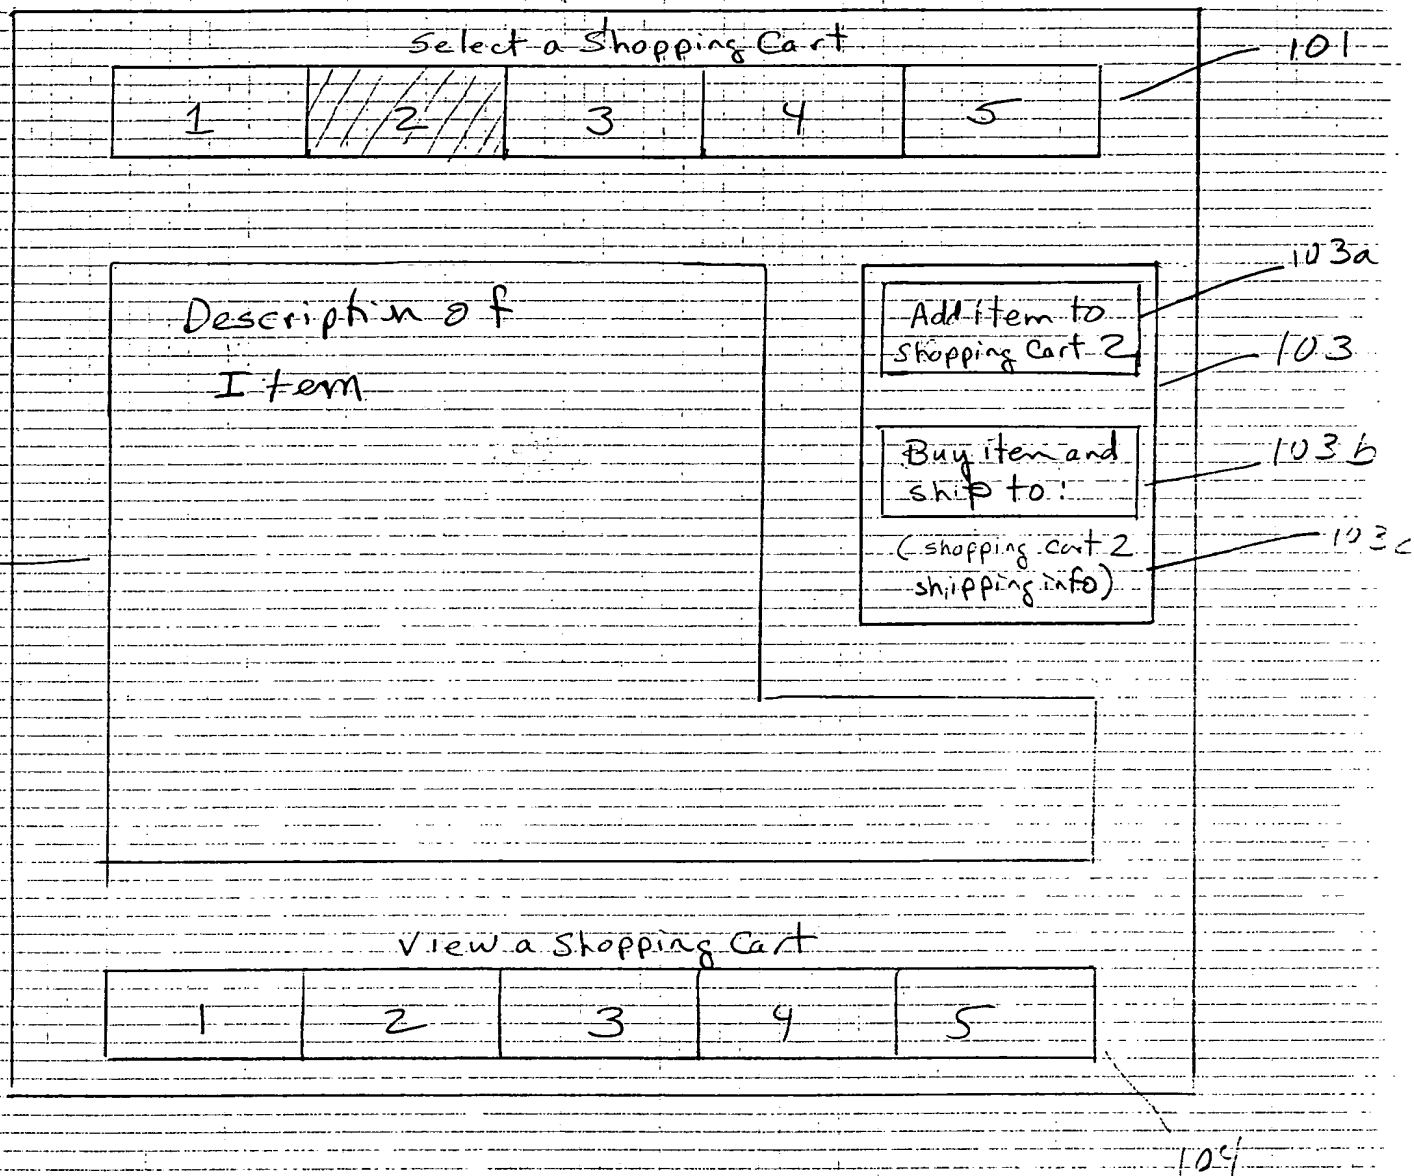 Select a Shopping Cart
101
1 2 3 4 5
103a
Description of
Item
Add item to
Shopping Cart 2
103
Buy item and
ship to:
103b
(shopping cart 2
shipping info)
103c
View a Shopping Cart
1 2 3 4 5
104